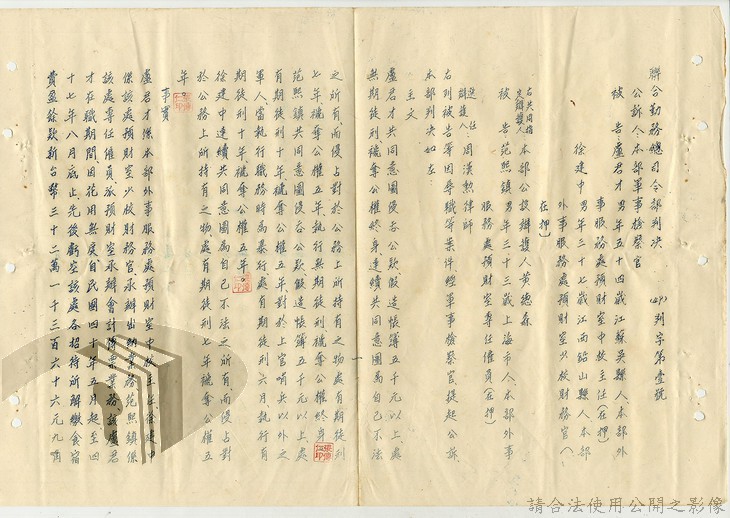 聯合勤務總司令部判決 判字第壹號
公訴人本部軍事檢察官
被告盧君才男年五十四歲江蘇吳縣人本部外
事服務處預財室中校主任(在押)
徐建中男年三十七歲江西鉛山縣人本部
外事服務處預財室少校財務官(
在押)
右共同指定辯護人本部公設辯護人黃德森
被告范熙鎮男年三十三歲上海市人本部外事
服務處預財室專任僱員(在押)
選任辯護人周漢勳律師
右列被告等因辱職等案件經軍事檢察官提起公訴
本部判決如左:
主文
盧君才共同意圖侵吞公款偽造帳簿五千元以上處
無期徒刑褫奪公權終身連續共同意圖為自己不法
一
之所有而侵占對於公務上所持有之物處有期徒刑
七年褫奪公權五年執行無期徒刑褫奪公權終身
范熙鎮共同意圖侵吞公款偽造帳簿五千元以上處
有期徒刑十年褫奪公權五年對於上官哨兵以外之
軍人當執行職務時為暴行處有期徒刑六月執行有
期徒刑十年褫奪公權五年。
徐建中連續共同意圖為自己不法之所有而侵占對
於公務上所持有之物處有期徒刑七年褫奪公權五
年。
事實
盧君才係本部外事服務處預財室中校主任徐建中
係該處預財室少校財務官承辦出納業務范熙鎮係
該處專任僱員派用預財室承辦會計帳業務該盧君
才在職期間因花用無度自民國四十年五月起至四
十七年八月底止先後虧空該處各招待所解繳食宿
費盈餘款新台幣三十二萬一千三百六十六元九角
請合法使用公開之影像